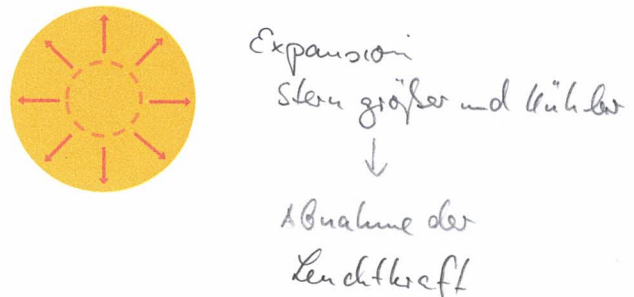 Expansion
Stern größer und kühler
↓
Abnahme der
Leuchtkraft